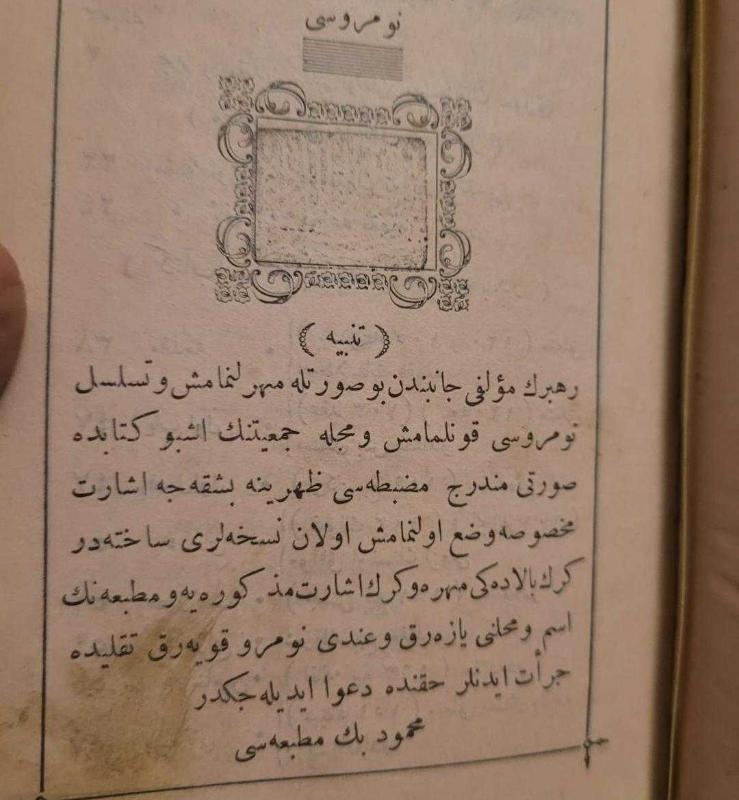 نومروسی
﴿ تنبیه ﴾
رهبرك مؤلفی جانبندن بو صورتله مهرلنمامش و تسلسل
نومروسی قونلمامش و مجله جمعیتنك اشبو كتابده
صورتی مندرج مضبطه‌سی ظهرینه بشقه‌جه اشارت
مخصوصه وضع اولنمامش اولان نسخه‌لری ساخته‌در
كرك بالاده‌كی مهره و كرك اشارت مذكوره‌یه و مطبعه‌نك
اسم و محلنی یازه‌رق و عندی نومرو قویه‌رق تقلیده
جرأت ایدنلر حقنده دعوا ایدیله‌جكدر
محمود بك مطبعه‌سی